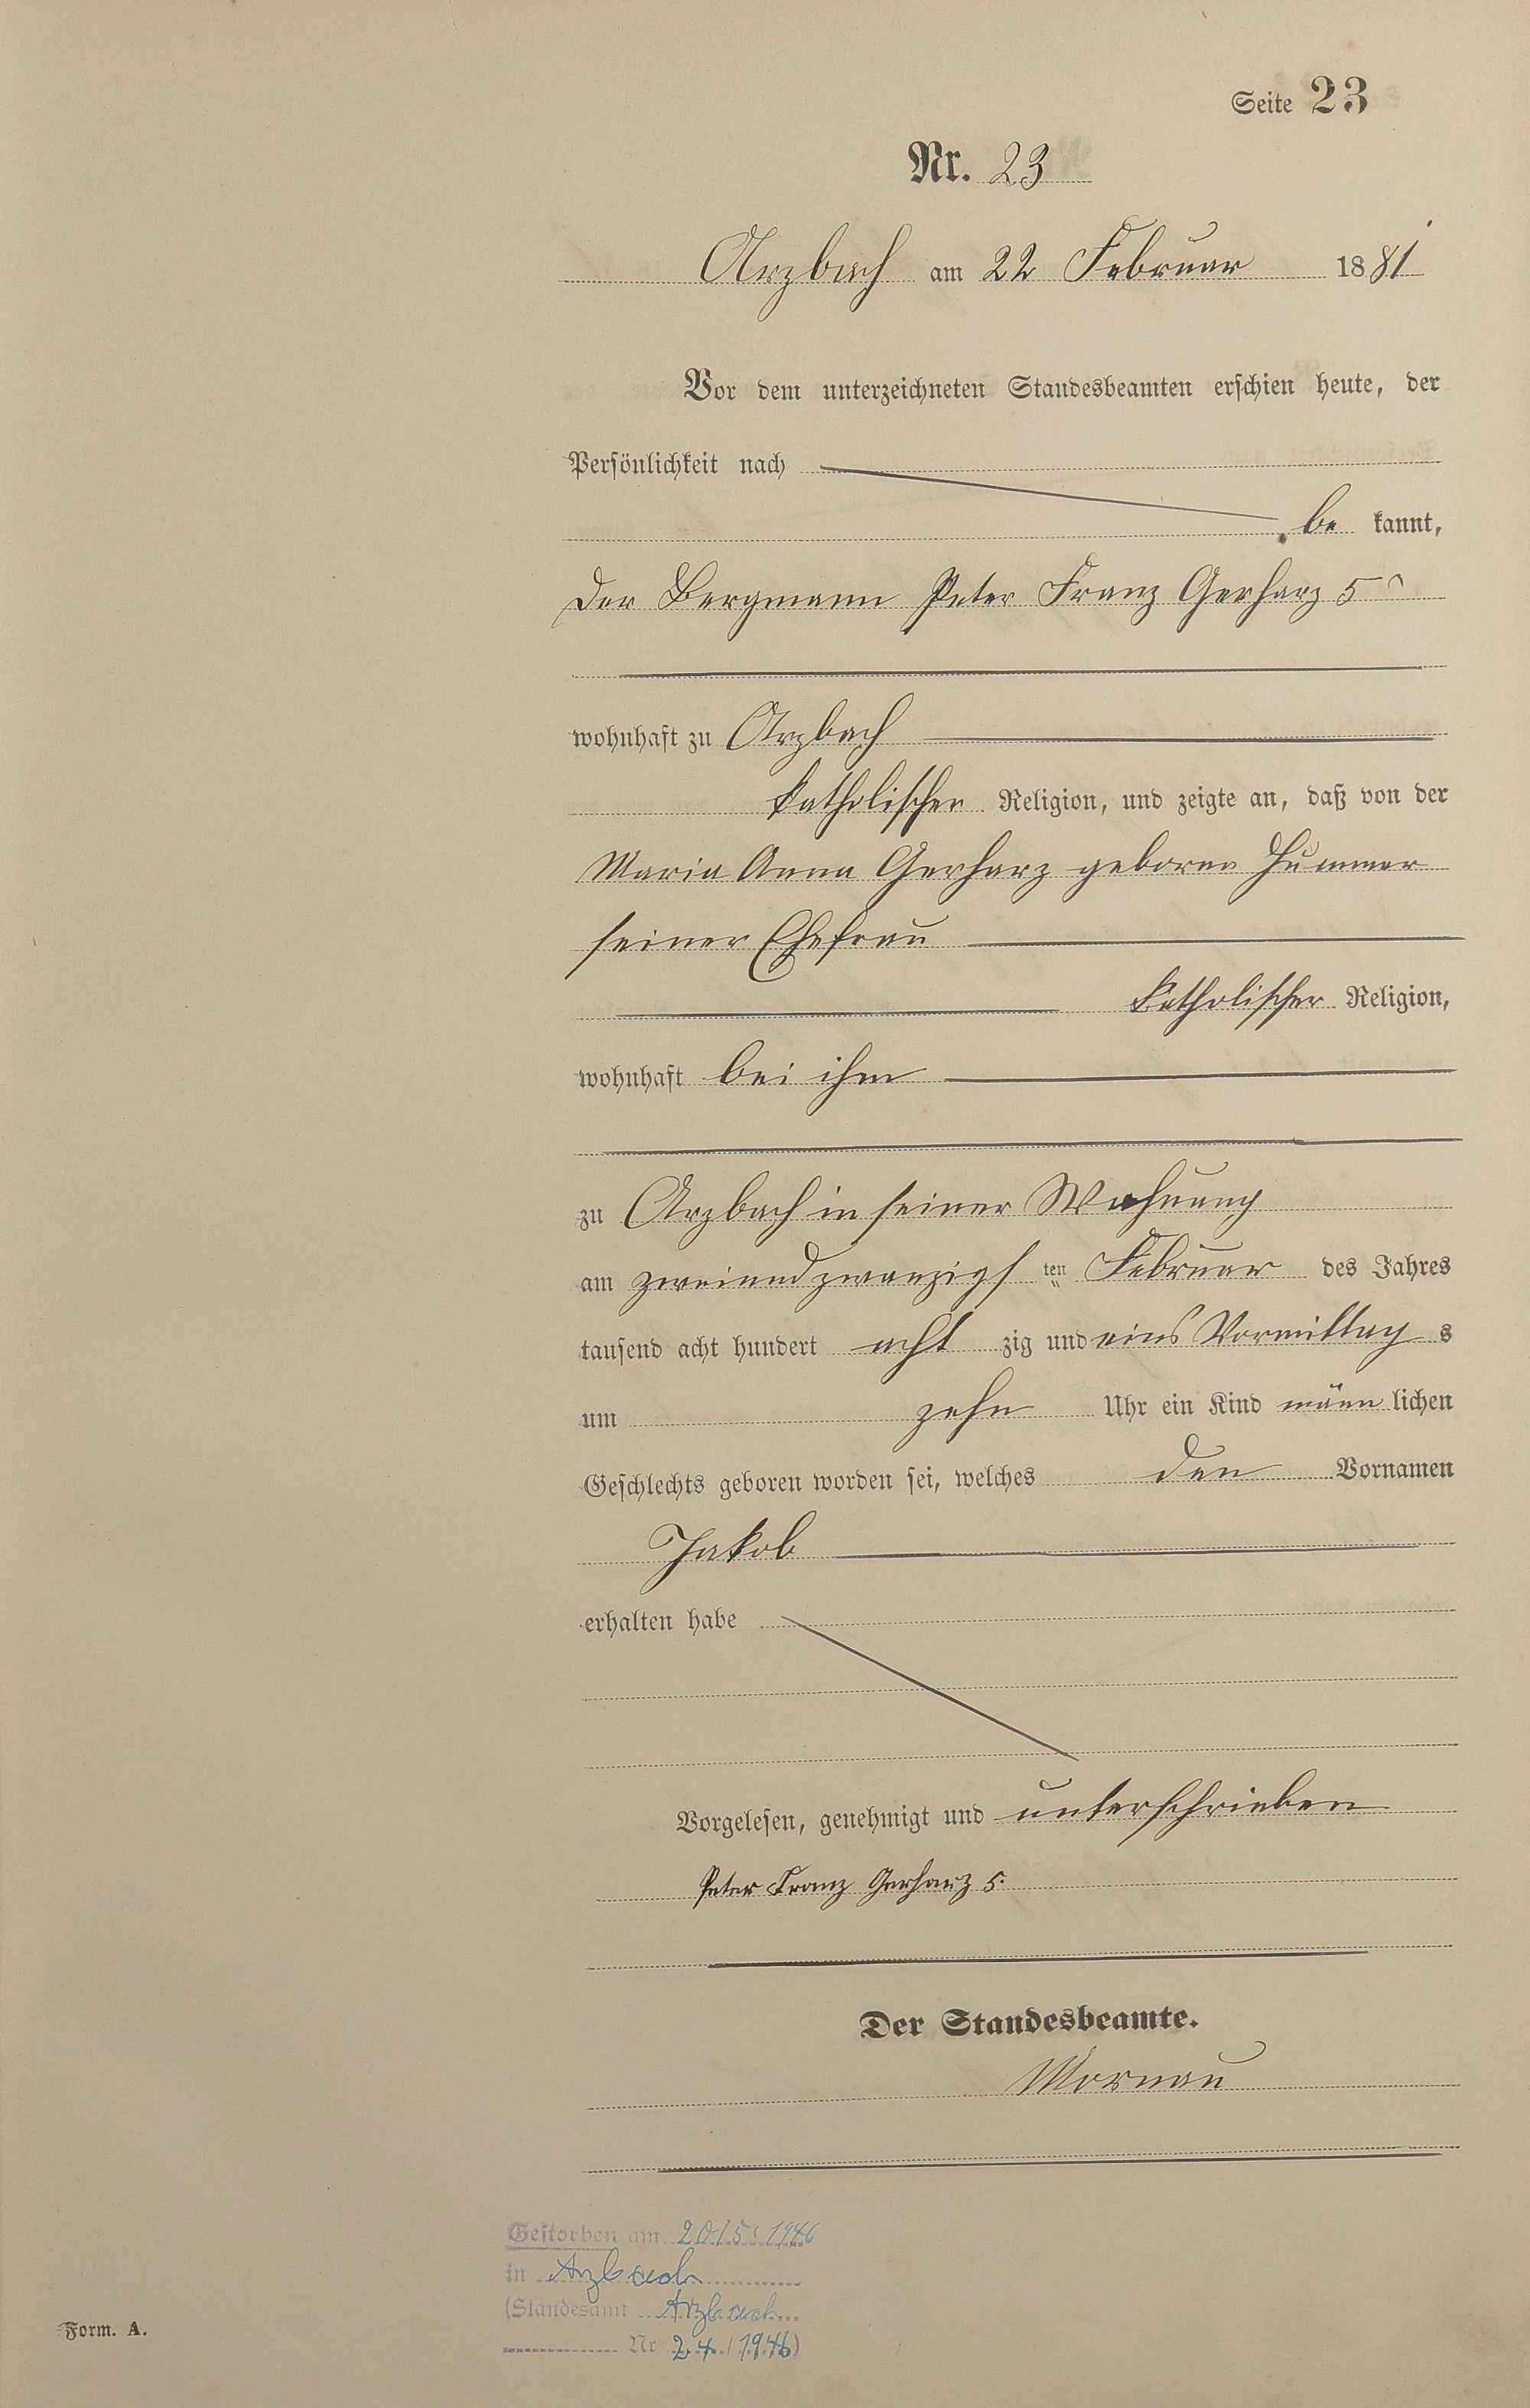 Seite 23
Nr. 23
Arzbach am 22 Februar 1881
Vor dem unterzeichneten Standesbeamten erschien heute, der
Persönlichkeit nach
be kannt,
der Bergmann Peter Franz Gerharz 5r
wohnhaft zu Arzbach
katholischer Religion, und zeigte an, daß von der
Maria Anna Gerharz geborne Hummer
seiner Ehefrau
katholischer Religion,
wohnhaft bei ihm
zu Arzbach in seiner Wohnung
am zweiundzwanzigs ten Februar des Jahres
tausend acht hundert acht zig und eins Vormittag s
um zehn Uhr ein Kind männ lichen
Geschlechts geboren worden sei, welches den Vornamen
Jakob
erhalten habe
Vorgelesen, genehmigt und unterschrieben
Peter Franz Gerharz 5.
Der Standesbeamte.
Mornau
Gestorben am 20.5.1946
in Arzbach
(Standesamt Arzbach
Nr 24/1946)
Form. A.